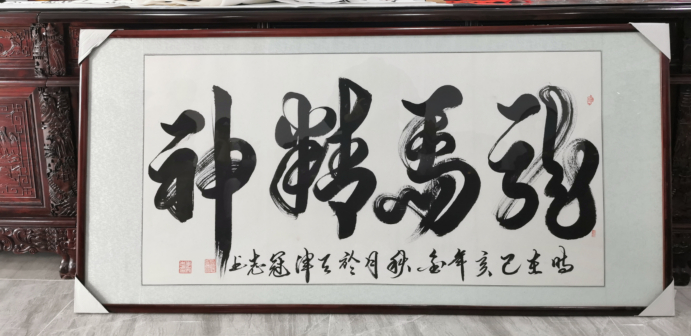 龍馬精神
時在己亥年金秋月於天津冠志上